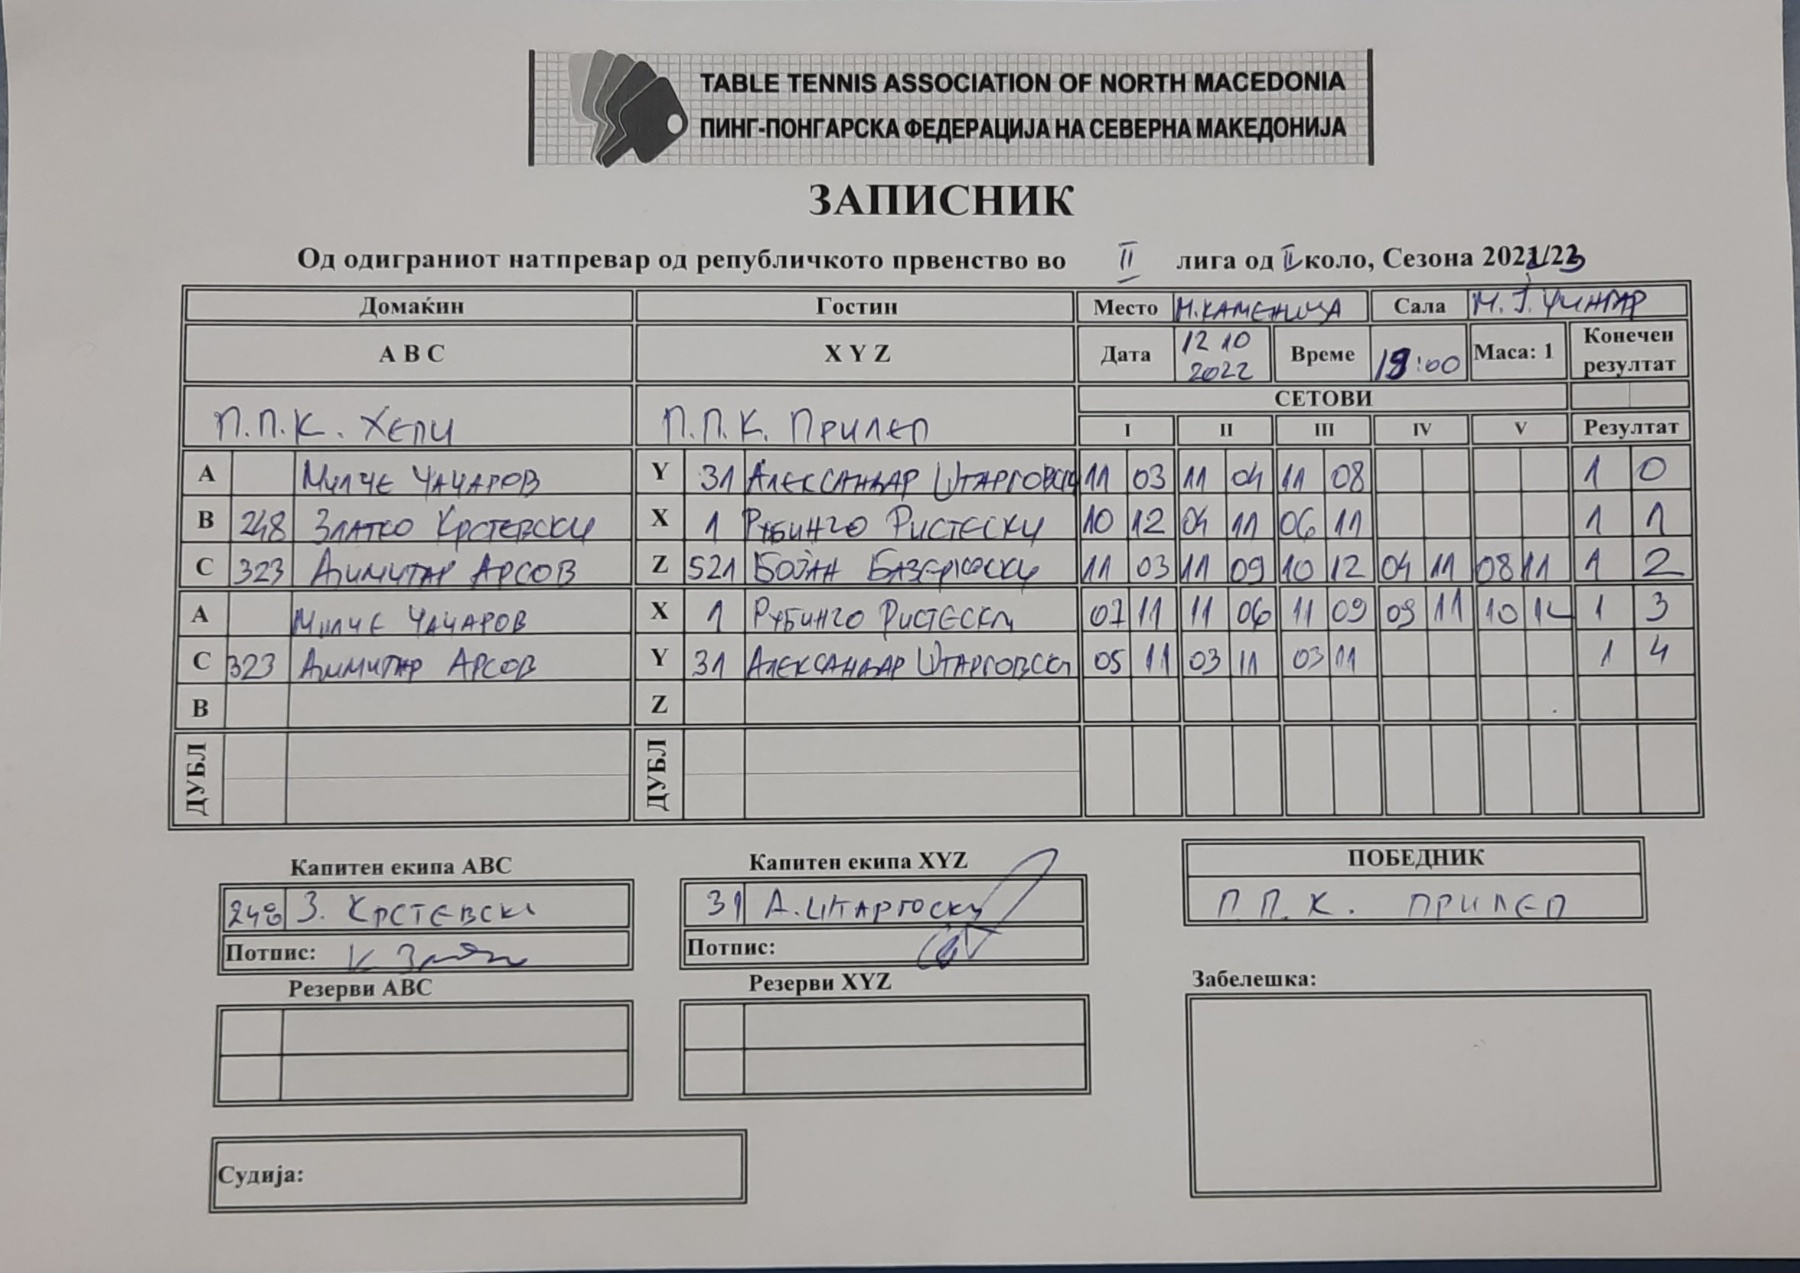 TABLE TENNIS ASSOCIATION OF NORTH MACEDONIA
ПИНГ-ПОНГАРСКА ФЕДЕРАЦИЈА НА СЕВЕРНА МАКЕДОНИЈА
ЗАПИСНИК
Од одиграниот натпревар од републичкото првенство во II лига од II коло, Сезона 2022/23
Домаќин Гостин Место М.КАМЕНИЦА Сала
A B C X Y Z Дата 12 10 2022 Време 19:00 Маса: 1 Конечен резултат
СЕТОВИ
П.П.К. ХЕПИ П.П.К. ПРИЛЕП I II III IV V Резултат
A МИЛЧЕ ЧАЧАРОВ Y 31 АЛЕКСАНДАР ШТАРГОВСКИ 11 03 11 04 11 08 1 0
B 248 ЗЛАТКО КРСТЕВСКИ X 1 РУБИНЧО РИСТЕСКИ 10 12 04 11 06 11 1 1
C 323 ДИМИТАР АРСОВ Z 521 БОЈАН 11 03 11 09 10 12 04 11 08 11 1 2
A МИЛЧЕ ЧАЧАРОВ X 1 РУБИНЧО РИСТЕСКИ 07 11 11 06 11 09 09 11 10 12 1 3
C 323 ДИМИТАР АРСОВ Y 31 АЛЕКСАНДАР ШТАРГОВСКИ 05 11 03 11 03 11 1 4
B Z
ДУБЛ ДУБЛ
Капитен екипа ABC Капитен екипа XYZ ПОБЕДНИК
248 З. КРСТЕВСКИ 31 А. ШТАРГОСКИ П.П.К. ПРИЛЕП
Потпис: Потпис:
Резерви ABC Резерви XYZ Забелешка:
Судија: